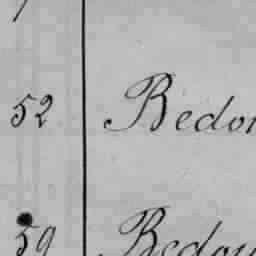 52 Bedon
59 Bedou